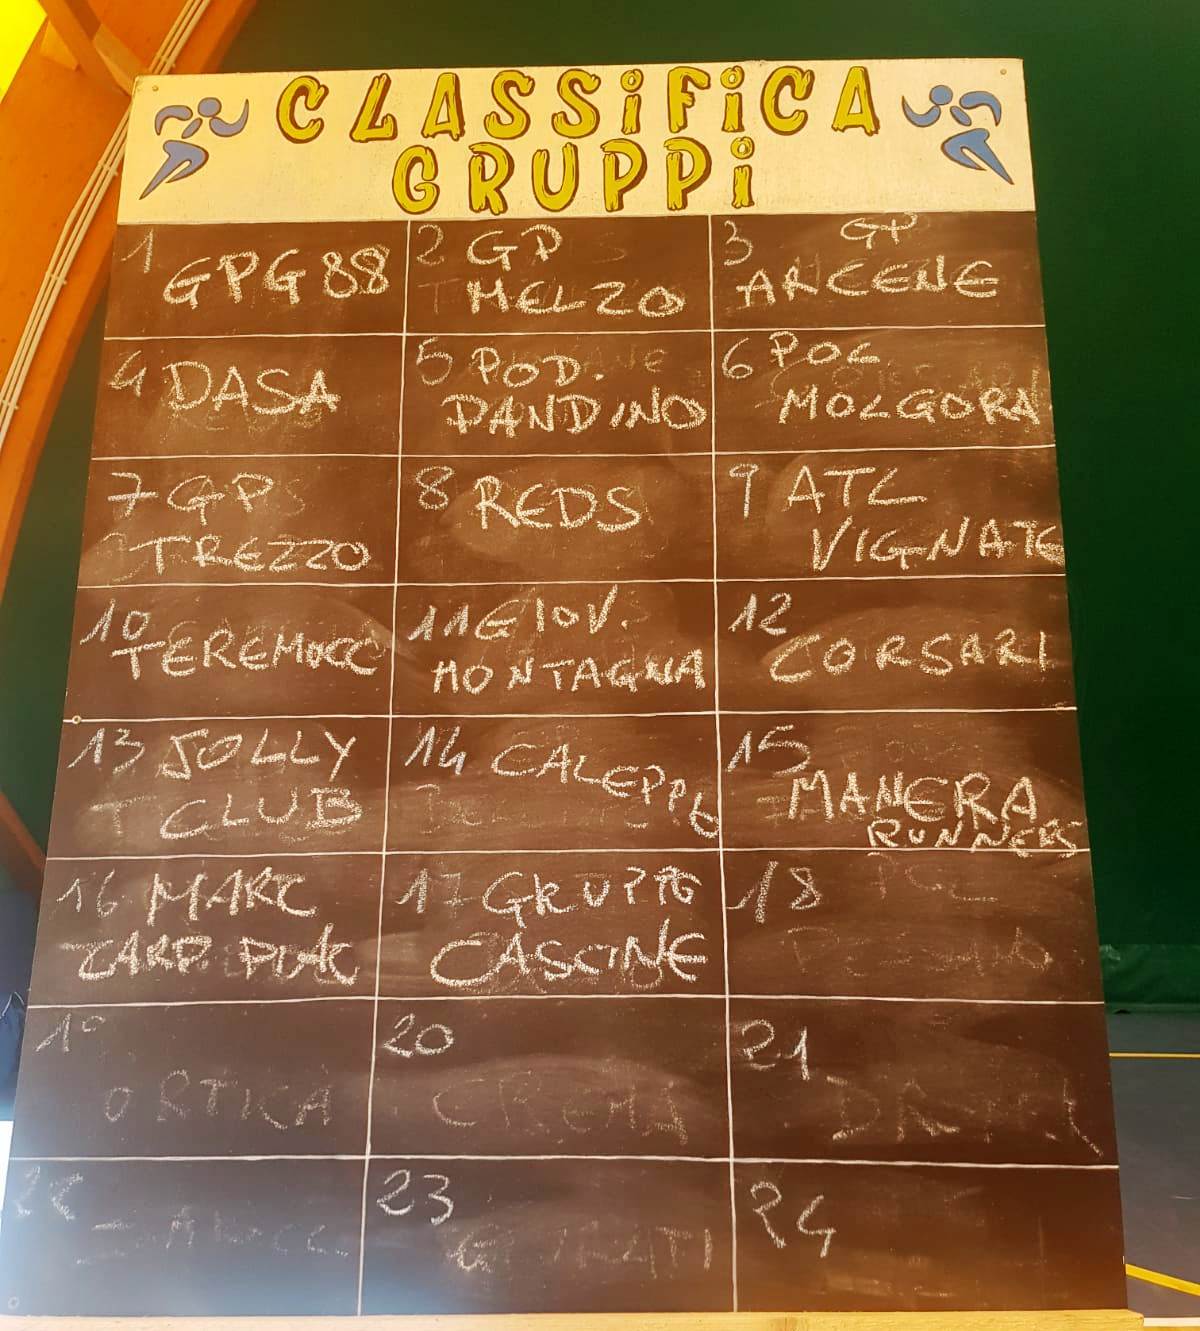 CLASSiFiCA
GRUPPi
1 GPG 88
2 GP
MELZO
3 GP
ARCENE
4 DASA
5 POD.
DANDINO
6 POL
MOLGORA
7 GP
TREZZO
8 REDS
9 ATL
VIGNATE
10
TEREMOCC
11 GIOV.
MONTAGNA
12
CORSARI
13 JOLLY
CLUB
14 CALEPPO
15
MANERA
RUNNERS
16 MARC
17 GRUPPO
CASCINE
18
19
ORTICA
20
CREMA
21
22
23
24